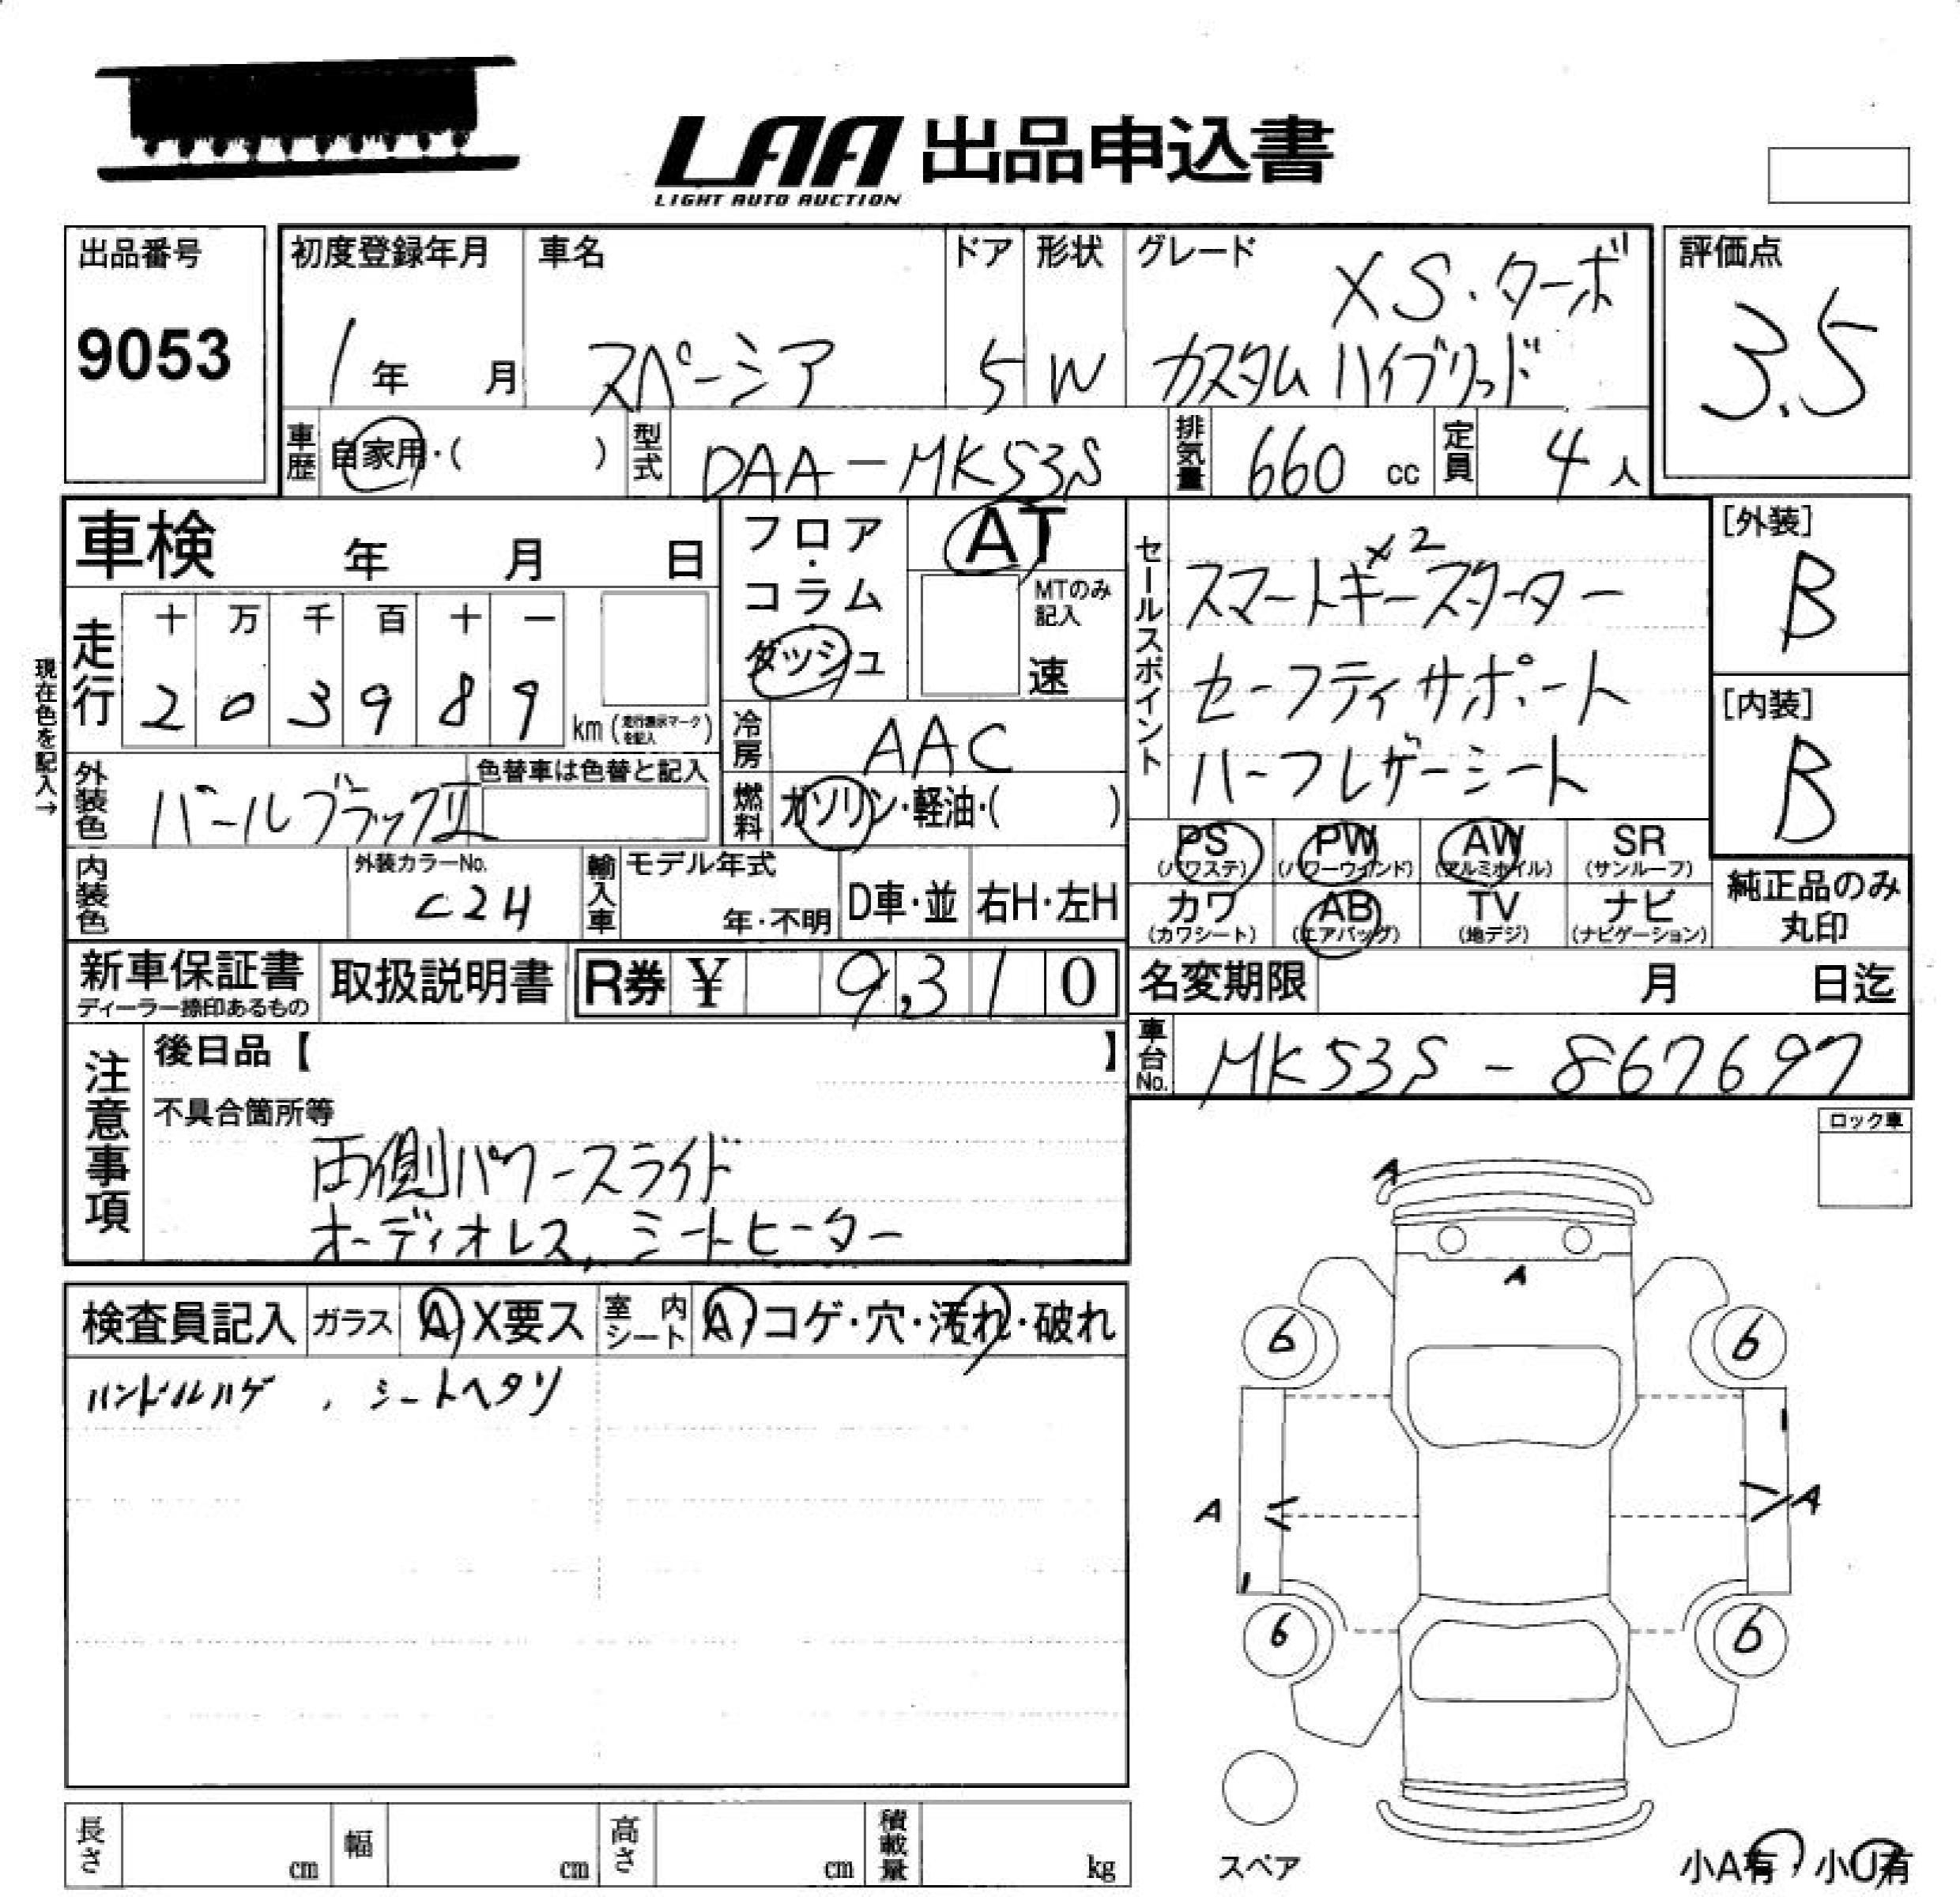 LAA 出品申込書
LIGHT AUTO AUCTION
出品番号
9053
初度登録年月
1 年 月
車名
スペーシア
ドア
5
形状
W
グレード
XS・ターボ
カスタム ハイブリッド
評価点
3.5
車歴
自家用・( )
型式
DAA-MK53S
排気量
660 cc
定員
4 人
車検 年 月 日
フロア・コラム
ダッシュ
AT
MTのみ
記入
速
セールスポイント
×2
スマートキースターター
セーフティサポート
ハーフレザーシート
[外装]
B
[内装]
B
現在色を記入→
走行
十 万 千 百 十 一
2 0 3 9 8 9
km (走行表示マークを記入)
冷房
AAC
外装色
パールブラックII
色替車は色替と記入
燃料
ガソリン・軽油・( )
PS
(パワステ)
PW
(パワーウインド)
AW
(アルミホイル)
SR
(サンルーフ)
カワ
(カワシート)
AB
(エアバッグ)
TV
(地デジ)
ナビ
(ナビゲーション)
純正品のみ
丸印
内装色
外装カラーNo.
C2H
輸入車
モデル年式
年・不明
D車・並
右H・左H
新車保証書
ディーラー捺印あるもの
取扱説明書
R券 ¥ 9,310
名変期限 月 日迄
車台No.
MK53S-867697
注意事項
後日品【 】
不具合箇所等
両側パワースライド
オーディオレス, シートヒーター
ロック車
検査員記入
ガラス
A X要ス
室内シート
A・コゲ・穴・汚れ・破れ
ハンドルハゲ , シートヘタリ
A
A
6
6
A
A
6
6
スペア
小A有・小U有
長さ cm
幅 cm
高さ cm
積載量 kg